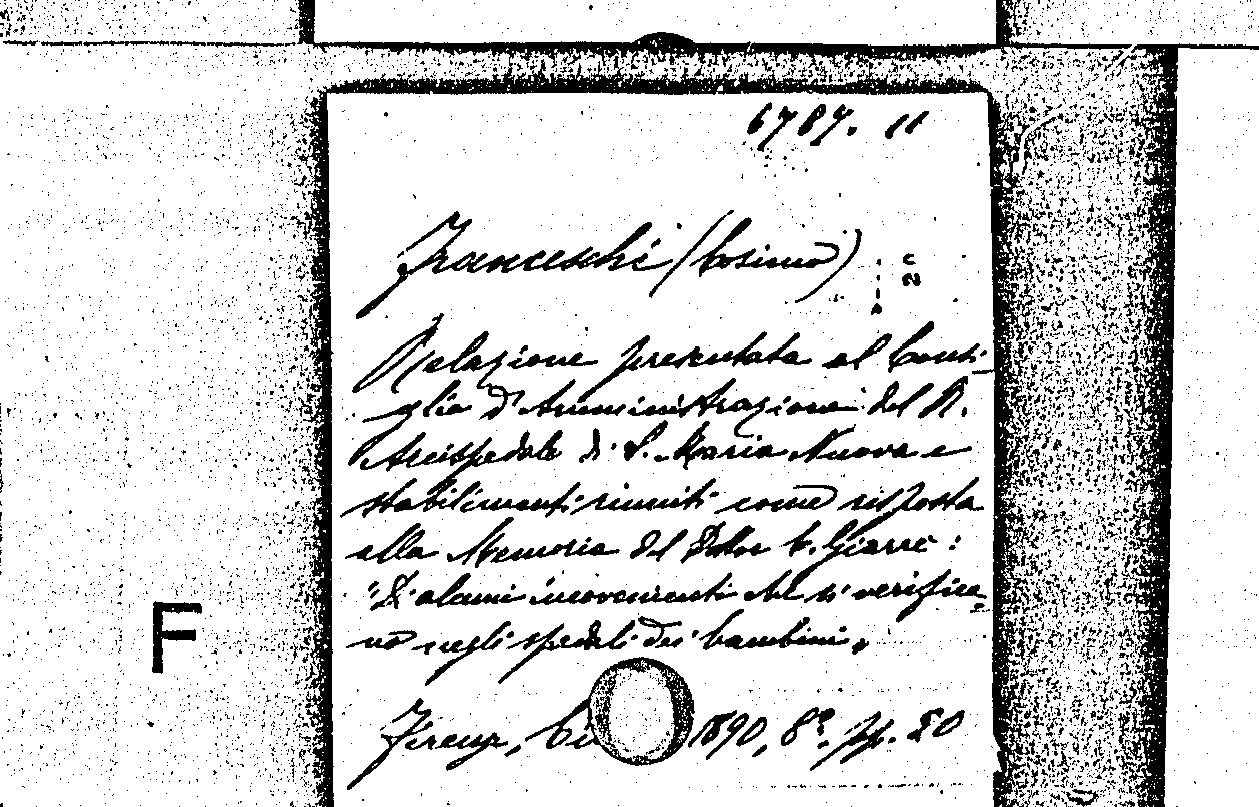 6787. 11
Franceschi (Cosimo)
Relazione presentata al Consi-
glio d'Amministrazione del R.
Arcispedale di S. Maria Nuova e
stabilimenti riuniti come risposta
alla Memoria del Dottor C. Giarrè:
"Di alcuni inconvenienti che si verifica-
no negli spedali dei bambini"
F
Firenze, 1890, 8º, pp. 20